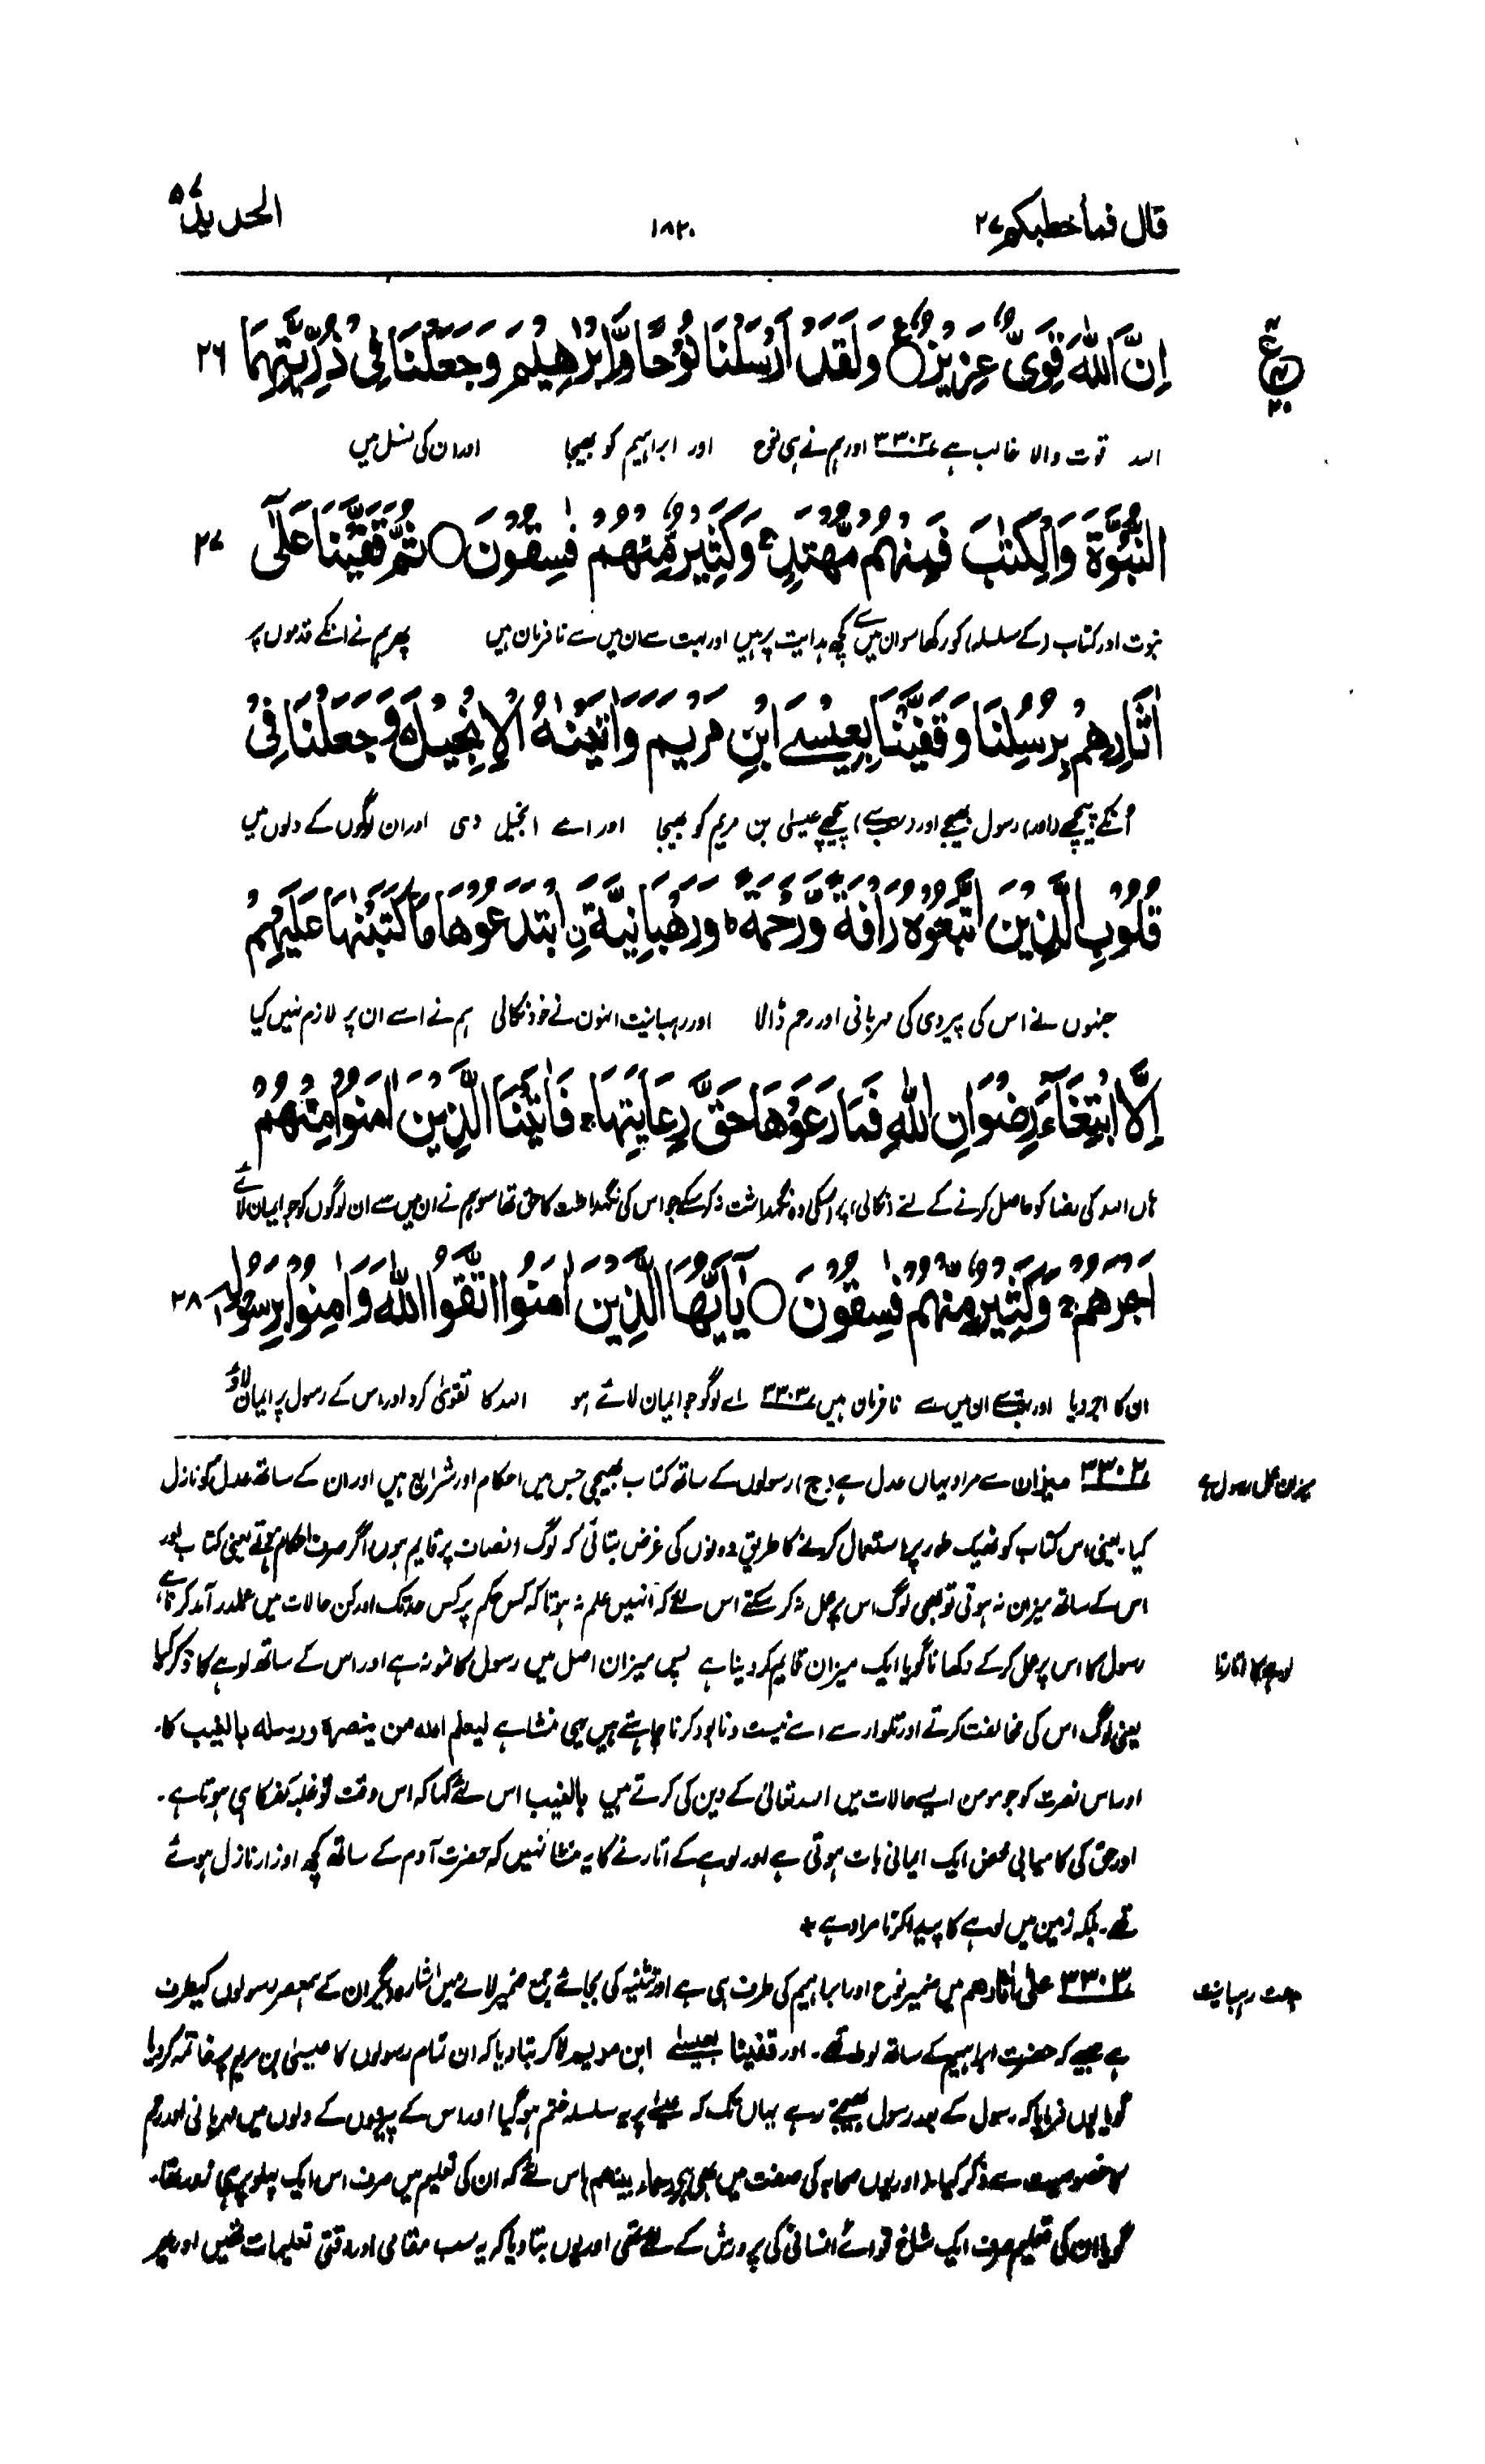 قال فما خطبکم ۲۷
۱۸۲۰
الحدید ۵۷
اِنَّ اللّٰهَ قَوِیٌّ عَزِیْزٌ ○ وَلَقَدْ اَرْسَلْنَا نُوْحًا وَّاِبْرٰهِیْمَ وَجَعَلْنَا فِیْ ذُرِّیَّتِهِمَا ۲۶
ع
۲۰
اللہ قوت والا غالب ہے ۳۳۰۲ اور ہم نے ہی نوح اور ابراہیم کو بھیجا اور ان کی نسل میں
النُّبُوَّةَ وَالْكِتٰبَ فَمِنْهُمْ مُّهْتَدٍ ۚ وَكَثِیْرٌ مِّنْهُمْ فٰسِقُوْنَ ○ ثُمَّ قَفَّیْنَا عَلٰٓی ۲۷
نبوت اور کتاب (کے سلسلہ) کو رکھا سو ان میں سے کچھ ہدایت پر ہیں اور بہت سے ان میں سے نافرمان ہیں پھر ہم نے انکے قدموں پر
اٰثَارِهِمْ بِرُسُلِنَا وَقَفَّیْنَا بِعِیْسَی ابْنِ مَرْیَمَ وَاٰتَیْنٰهُ الْاِنْجِیْلَ ۵ وَجَعَلْنَا فِیْ
اُنکے پیچھے (اور) رسول بھیجے اور (سب سے) پیچھے عیسیٰ بن مریم کو بھیجا اور اسے انجیل دی اور ان لوگوں کے دلوں میں
قُلُوْبِ الَّذِیْنَ اتَّبَعُوْهُ رَاْفَةً وَّرَحْمَةً ؕ وَرَهْبَانِیَّةَ ِۨ ابْتَدَعُوْهَا مَا كَتَبْنٰهَا عَلَیْهِمْ
جنہوں نے اس کی پیروی کی مہربانی اور رحم ڈالا اور رہبانیت انہوں نے خود نکالی ہم نے اسے ان پر لازم نہیں کیا
اِلَّا ابْتِغَآءَ رِضْوَانِ اللّٰهِ فَمَا رَعَوْهَا حَقَّ رِعَایَتِهَا ۚ فَاٰتَیْنَا الَّذِیْنَ اٰمَنُوْا مِنْهُمْ
ہاں اللہ کی رضا کو حاصل کرنے کے لئے (نکالی) پر اسکی وہ نگہداشت نہ کر سکے جو اس کی نگہداشت کا حق تھا سو ہم نے ان میں سے ان لوگوں کو جو ایمان لائے
اَجْرَهُمْ ۚ وَكَثِیْرٌ مِّنْهُمْ فٰسِقُوْنَ ○ یٰٓاَیُّهَا الَّذِیْنَ اٰمَنُوا اتَّقُوا اللّٰهَ وَاٰمِنُوْا بِرَسُوْلِهٖ ۲۸
ان کا اجر دیا اور بہت سے ان میں سے نافرمان ہیں ۳۳۰۳ اے لوگو جو ایمان لائے ہو اللہ کا تقویٰ کرو اور اس کے رسول پر ایمان لاؤ
میزان عمل رسول ہے
۳۳۰۲ میزان سے مراد یہاں عدل ہے (ج) رسولوں کے ساتھ کتاب بھیجی جس میں احکام اور شرایع ہیں اور ان کے ساتھ عدل کو نازل
کیا۔ یعنی اس کتاب کو ٹھیک طور پر استعمال کرنے کا طریق دونوں کی غرض بتائی کہ لوگ انصاف پر قایم ہوں اگر صرف احکام ہوتے یعنی کتاب اور
اس کے ساتھ میزان نہ ہوتی تو بھی لوگ اس پر عمل نہ کر سکتے اس لئے کہ انہیں علم نہ ہوتا کہ کس حکم پر کس حد تک اور کن حالات میں عملدرآمد کرنا ہے،
لوہے کا اتارنا
رسول کا اس پر عمل کر کے دکھانا گویا ایک میزان قایم کر دینا ہے پس میزان اصل میں رسول کا نمونہ ہے اور اس کے ساتھ لوہے کا ذکر کیا
یعنی لوگ اس کی مخالفت کرتے اور تلوار سے اسے نیست و نابود کرنا چاہتے ہیں یہی منشا ہے لیعلم الله من ینصره ورسله بالغیب کا۔
اور اس نصرت کو جو مومن ایسے حالات میں اللہ تعالیٰ کے دین کی کرتے ہیں بالغیب اس لئے کہا کہ اس وقت تو غلبہ کفر کا ہی ہوتا ہے۔
اور حق کی کامیابی محض ایک ایمانی بات ہوتی ہے اور لوہے کے اتارنے کا یہ منشا نہیں کہ حضرت آدم کے ساتھ کچھ اوزار نازل ہوئے
تھے۔ بلکہ زمین میں لوہے کا پیدا کرنا مراد ہے +
بدعت رہبانیت
۳۳۰۳ علی اٰثارهم میں ضمیر نوح اور ابراہیم کی طرف ہی ہے اور تثنیہ کی بجائے جمع ضمیر لانے میں اشارہ دیگر ان کے ہمعصر رسولوں کیطرف
ہے جیسے کہ حضرت ابراہیم کے ساتھ لوط تھے۔ اور قفینا بعیسی ابن مریم لا کر بتا دیا کہ ان تمام رسولوں کا عیسیٰ بن مریم پر خاتمہ کر دیا
گویا یوں فرمایا کہ رسول کے بعد رسول بھیجتے رہے یہاں تک کہ عیسیٰ پر یہ سلسلہ ختم ہو گیا اور اس کے پیرووں کے دلوں میں مہربانی اور رحم
کا خصوصیت سے ذکر کیا۔ (اور یوں صحابہ کی صفت میں بھی ہے رحماء بینهم) اس لئے کہ ان کی تعلیم میں صرف اس ایک پہلو پر ہی زور تھا۔
گویا ان کی تعلیم صرف ایک شاخ قوائے انسانی کی پرورش کے لئے تھی اور یوں بتا دیا کہ یہ سب مقامی اور وقتی تعلیمات تھیں اور پھر